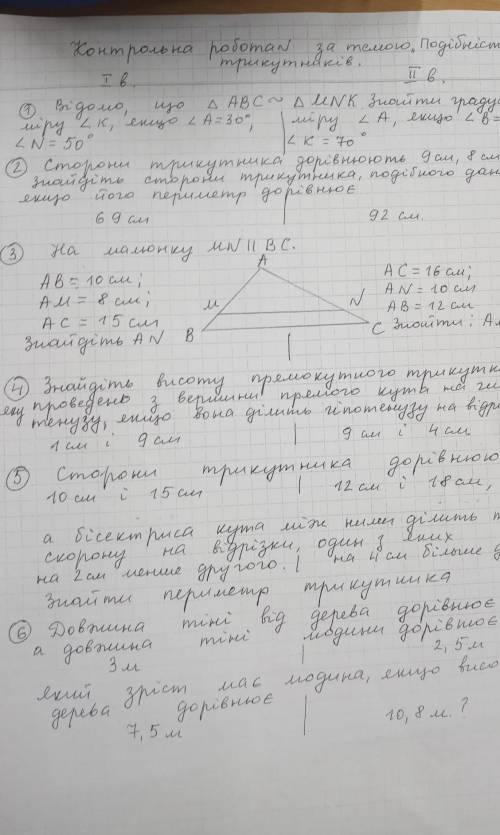 Контрольна робота за темою. Подібніст
трикутників.
I в. II в.
① Відомо, що △ ABC ~ △ MNK. Знайти граду
міру ∠K, якщо ∠A=30°, | міру ∠A, якщо ∠B=
∠N = 50° ∠K = 70°
② Сторони трикутника дорівнюють 9 см, 8 см
Знайдіть сторони трикутника, подібного дан
якщо його периметр дорівнює
69 см | 92 см.
③ На малюнку MN || BC.
A
AB = 10 см; AC = 16 см;
AM = 8 см; M N AN = 10 см
AC = 15 см AB = 12 см
Знайдіть AN B C Знайти: AM
④ Знайдіть висоту прямокутного трикутн
яку проведено з вершини прямого кута на гі
тенузу, якщо вона ділить гіпотенузу на відрі
1 см і 9 см | 9 см і 4 см
⑤ Сторони трикутника дорівнюю
10 см і 15 см | 12 см і 18 см,
а бісектриса кута між ними ділить т
сторону на відрізки, один з яких
на 2 см менше другого. | на 4 см більше д
Знайти периметр трикутника
⑥ Довжина тіні від дерева дорівнює
а довжина тіні людини дорівнює
3 м | 2,5 м
який зріст має людина, якщо висо
дерева дорівнює
7,5 м | 10,8 м.?